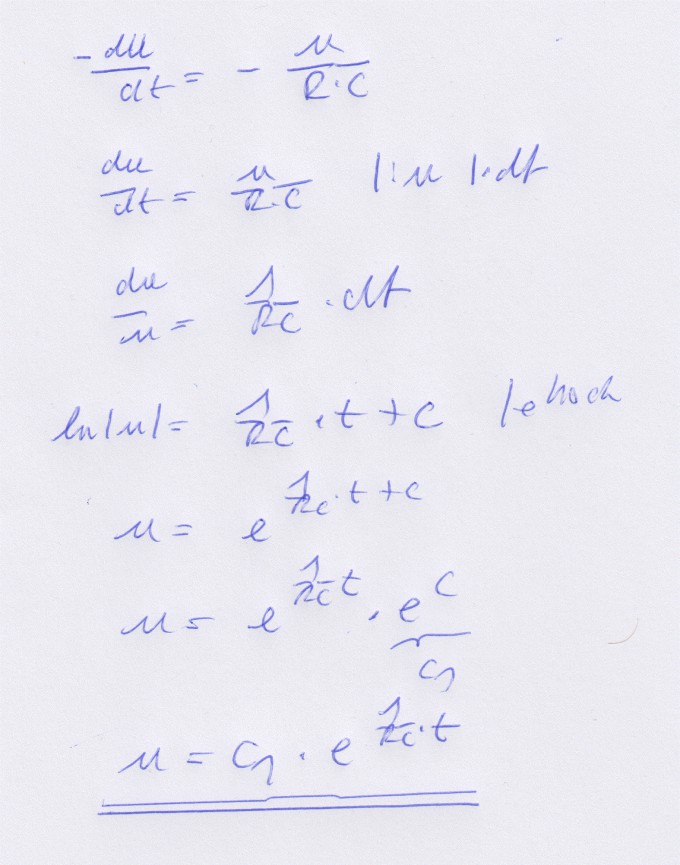 -du/dt = - u/(R·C)
du/dt = u/(R·C) |:u |·dt
du/u = 1/(RC) · dt
ln|u| = 1/(RC) · t + C |e^hoch
u = e^(1/(RC) · t + C)
u = e^(1/(RC) t) · e^C
C₁
u = C₁ · e^(1/(RC) · t)